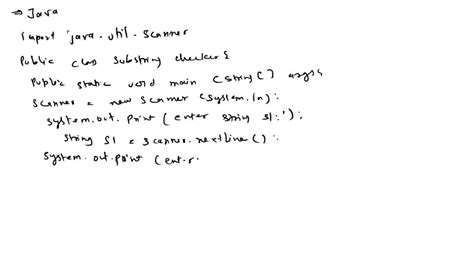 ⇒ Java
import java.util.Scanner
Public class Substring checker {
Public static void main (String[] args {
Scanner = new Scanner (System.in):
System.out.print (enter string s1:');
String S1 = Scanner.nextLine():
System.out.print (enter